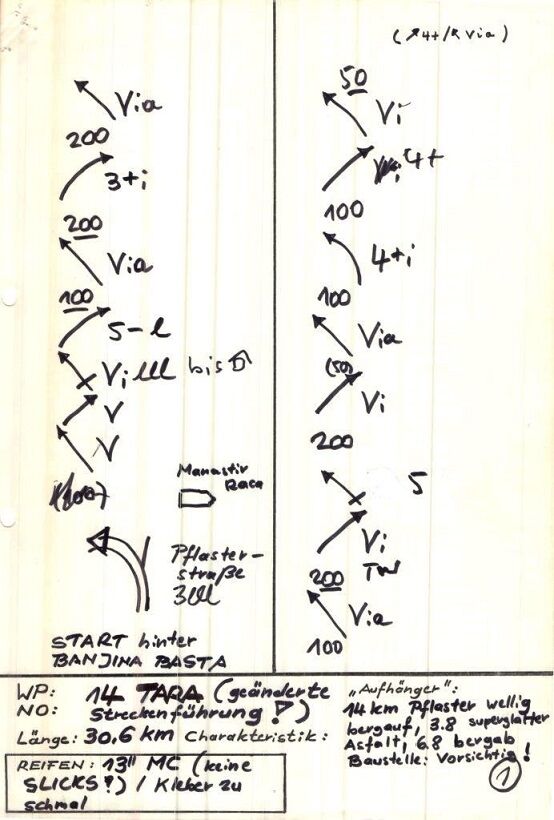 Via
200
3+i
200
Via
100
5-l
Vi lll bis
V
V
Manastir
Raca
Pflaster-
straße
START hinter
BANJINA BASTA
(↗4+/↖Via)
50
Vi
4+
100
4+i
100
Via
(50)
Vi
200
5
Vi
200
Via
100
WP: 14 TARA (geänderte
NO: Streckenführung!)
Länge: 30,6 km Charakteristik:
REIFEN: 13" MC (keine
SLICKS?) / Kleber zu
schmal
„Aufhänger":
14 km Pflaster wellig
bergauf, 3.8 superglatter
Asfalt, 6.8 bergab
Baustelle: Vorsichtig!
1